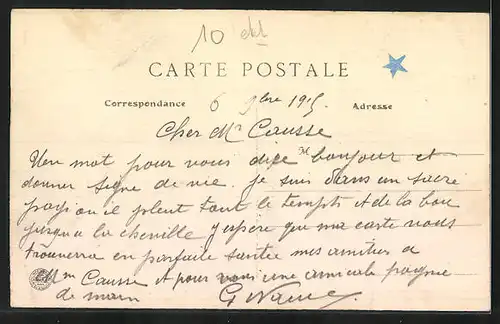 10
CARTE POSTALE
Correspondance 6 9bre 1915 Adresse
Cher Mr Causse
Un mot pour vous dire bonjour et
donner signe de vie. je suis dans un sacré
pays ou il pleut tout le temps et de la boue
jusqu'a la cheville j'espere que ma carte vous
trouvera en parfaite santée mes amitiés a
Mm Causse et pour vous une amicale poignée
de main G